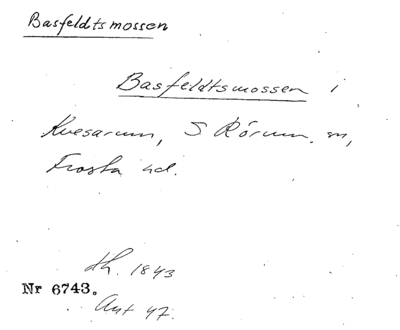 Basfeldtsmossen
Basfeldtsmossen i
Kvesarum, S Rörum sn,
Frosta hd.
th. 1843
Nr 6743.
Ant 47.